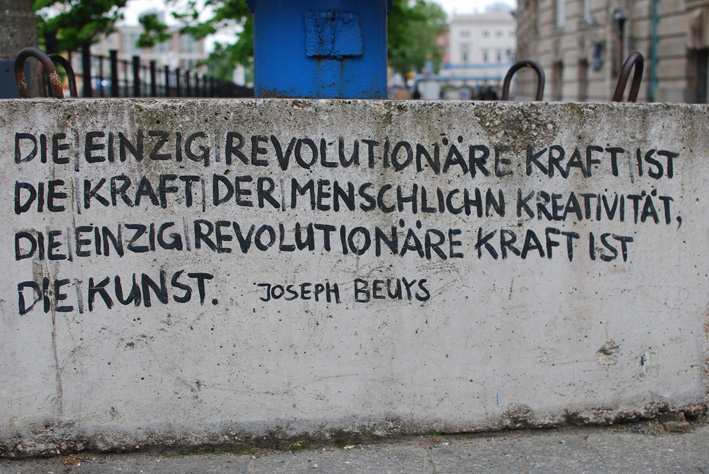 DIE EINZIG REVOLUTIONÄRE KRAFT IST
DIE KRAFT DER MENSCHLICHN KREATIVITÄT,
DIE EINZIG REVOLUTIONÄRE KRAFT IST
DIE KUNST. JOSEPH BEUYS